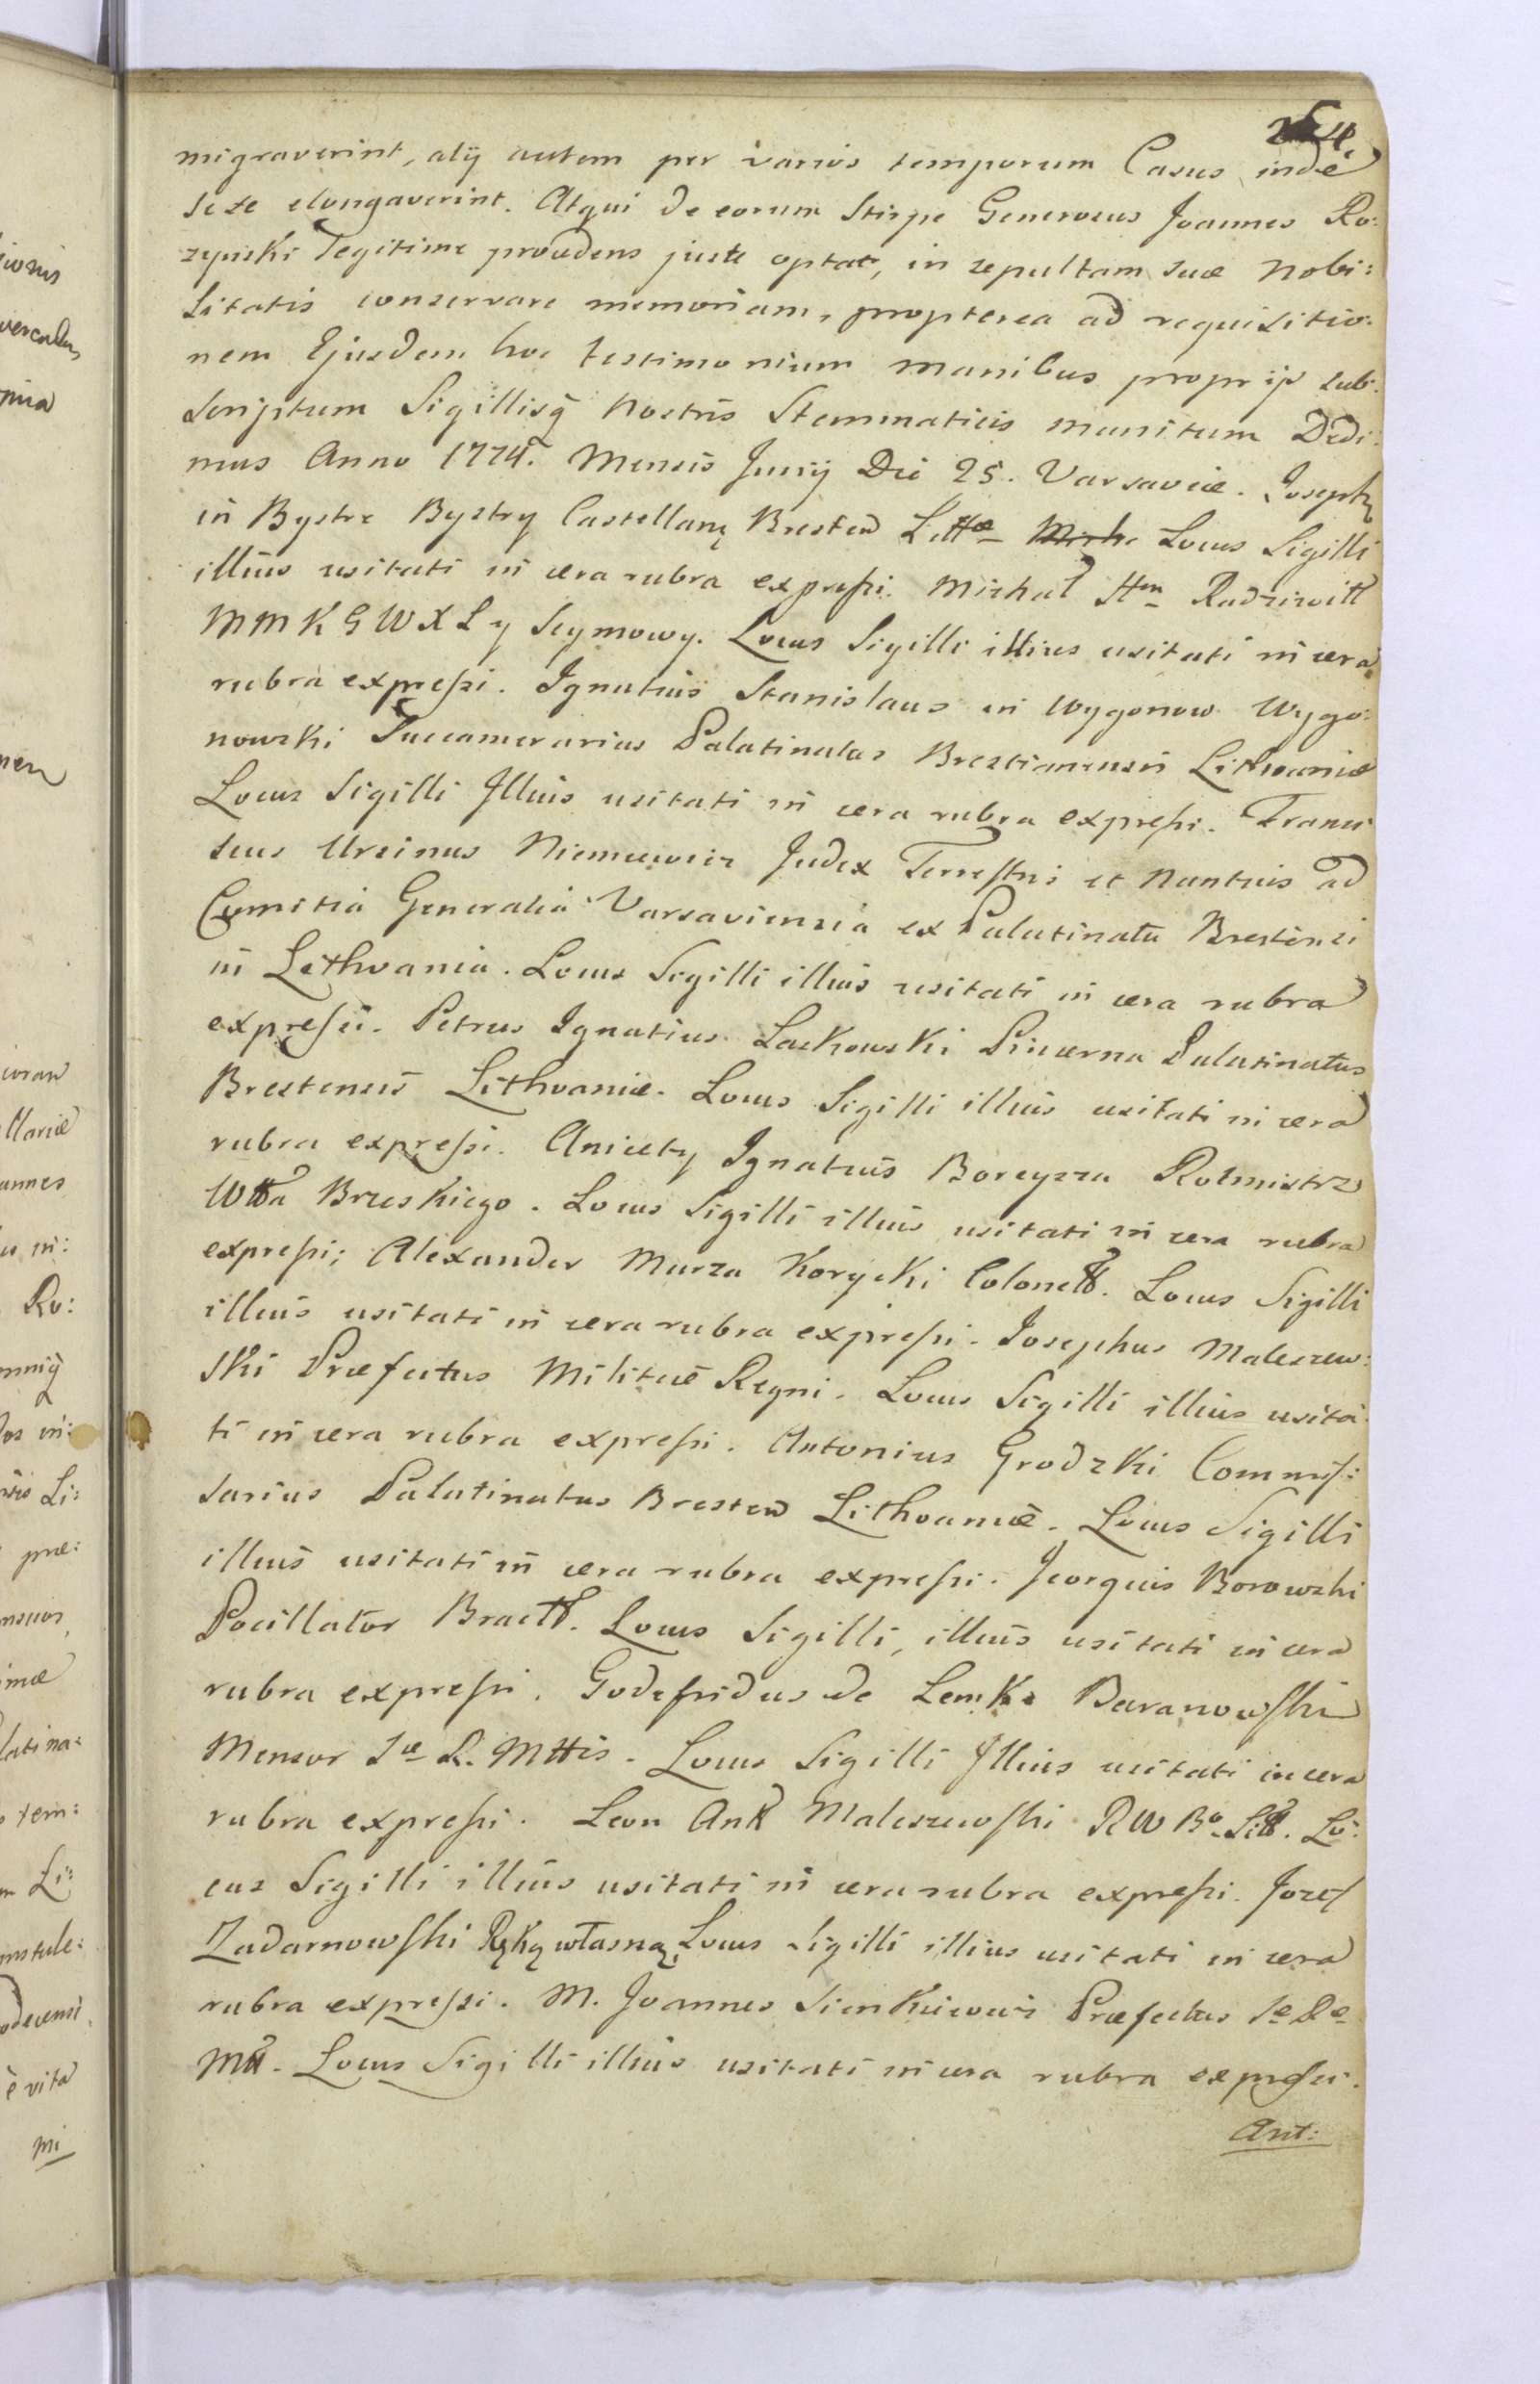 migraverint, alij autem per varios temporum Casus inde
sese elongaverint. Atqui de eorum Stirpe Generosus Joannes Ro:
zynski Legitime provdens juste optat, in sepultam suæ Nobi:
litatis conservare memoriam, propterea ad requisitio:
nem Ejusdem hoc testimonium manibus proprijs sub:
scriptum Sigillisq Nostris Stemmaticis munitum Dedi:
mus Anno 1774. Mensis Junij Die 25. Varsaviæ. Joseph
in Bystre Bystry Castellanus Bresten Littæ Locus Sigilli
illius usitati in cera rubra expressi. Michał Hrn Radziwiłł
M M K G W X L y Seymowy. Locus Sigilli illius usitati in cera
rubra expressi. Ignatius Stanislaus in Wygonow Wygo:
nowski Succamerarius Palatinatus Brestianensis Lithvaniæ
Locus Sigilli Illius usitati in cera rubra expressi. Franci
scus Ursinus Niemcewicz Judex Terrestris et Nuntius ad
Comitia Generalia Varsaviensia ex Palatinatu Brestensi
in Lithvania. Locus Sigilli illius usitati in cera rubra
expressi. Petrus Ignatius Laskowski Pincerna Palatinatus
Brestensis Lithvaniæ. Locus Sigilli illius usitati in cera
rubra expressi. Anicety Ignatius Boreysza Rotmistrz
Wtta Brzeskiego. Locus Sigilli illius usitati in cera rubra
expressi; Alexander Murza Korycki Colonell. Locus Sigilli
illius usitati in cera rubra expressi. Josephus Maleszew:
ski Præfectus Militiæ Regni. Locus Sigilli illius usita
ti in cera rubra expressi. Antonius Grodzki Commis:
sarius Palatinatus Bresten Lithvaniæ. Locus Sigilli
illius usitati in cera rubra expressi. Jeorgius Borowski
Pocillator Bractt. Locus Sigilli, illius usitati in cera
rubra expressi. Godefridus de Lemke Baranowski
Mensor Sæ R. Mttis. Locus Sigilli Illius usitati in cera
rubra expressi. Leon Ant Maleszewski R W Bo Litt. Lo:
cus Sigilli illius usitati in cera rubra expressi. Jozef
Zadarnowski Ręką własną, Locus Sigilli illius usitati in cera
rubra expressi. M. Joannes Sienkiewicz Præfectus Se Re
Mtt. Locus Sigilli illius usitati in cera rubra expressi.
Ant: